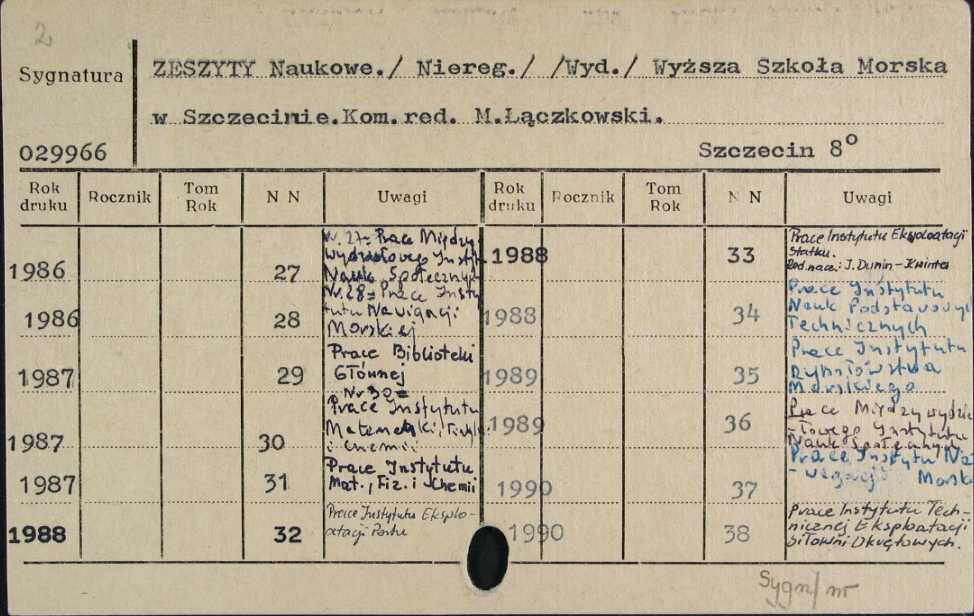 2
Sygnatura
ZESZYTY Naukowe./ Niereg./ /Wyd./ Wyższa Szkoła Morska
w Szczecinie.Kom.red. M.Łączkowski.
029966
Szczecin 8°
Rok druku
Rocznik
Tom Rok
N N
Uwagi
Rok druku
Rocznik
Tom Rok
N N
Uwagi
1986
27
Nr. 27= Prace Między
Wydziałowego Insty
Nauk Społecznych
1986
28
Nr. 28= Prace Insty
tutu Nawigacji
Morskiej
1987
29
Prace Biblioteki
Głównej
1987
30
Nr 30=
Prace Instytutu
Matematyki, Fizyki
i Chemii
1987
31
Prace Instytutu
Mat., Fiz. i Chemii
1988
32
Prace Instytutu Eksplo-
atacji Portu
1988
33
Prace Instytutu Eksploatacji
Statku.
Red. nacz.: J. Dunin-Kwinta
1988
34
Prace Instytutu
Nauk Podstawowych
Technicznych
1989
35
Prace Instytutu
Rybołówstwa
Morskiego
1989
36
Prace Międzywydzia
-łowego Instytutu
Nauk Społecznych
1990
37
Prace Instytu Na
-wigacji Morsk
1990
38
Prace Instytutu Tech-
nicznej Eksploatacji
Siłowni Okrętowych.
Sygn/nr